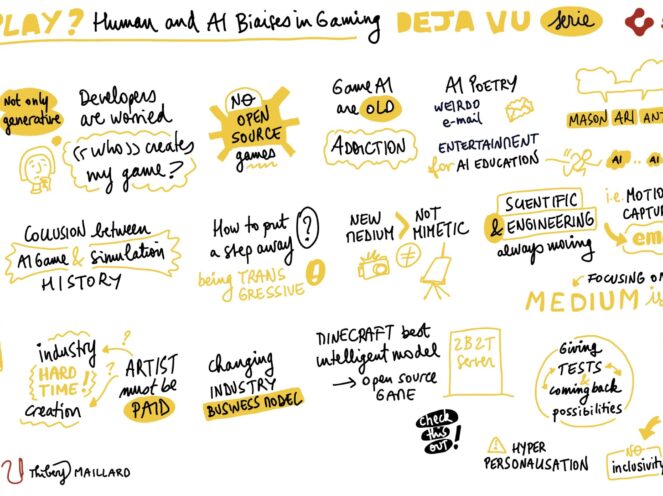 PLAY? Human and AI Biaises in Gaming DEJA VU serie
Not only
generative
Developers
are worried
"who" creates
my game?
NO
OPEN
SOURCE
games
Game AI
are OLD
ADDICTION
AI POETRY
WEIRDO
e-mail
ENTERTAINMENT
for AI EDUCATION
MASON ARI ANT
AI .. AI
COLLUSION between
AI Game & Simulation
HISTORY
How to put
a step away ?
being TRANS
GRESSIVE !
NEW
MEDIUM > NOT
MIMETIC
≠
SCIENTIFIC
& ENGINEERING
always moving
i.e. MOTIO
CAPTU
em
FOCUSING ON
MEDIUM is
industry
HARD
TIME!
creation
?
?
ARTIST
must be
PAID
changing
INDUSTRY
BUSINESS MODEL
MINECRAFT best
intelligent model
→ open source
GAME
2B2T
Server
check
this
out !
Giving
TESTS
&
coming back
possibilities
! HYPER
PERSONALISATION
NO
inclusivity
Thibery MAILLARD